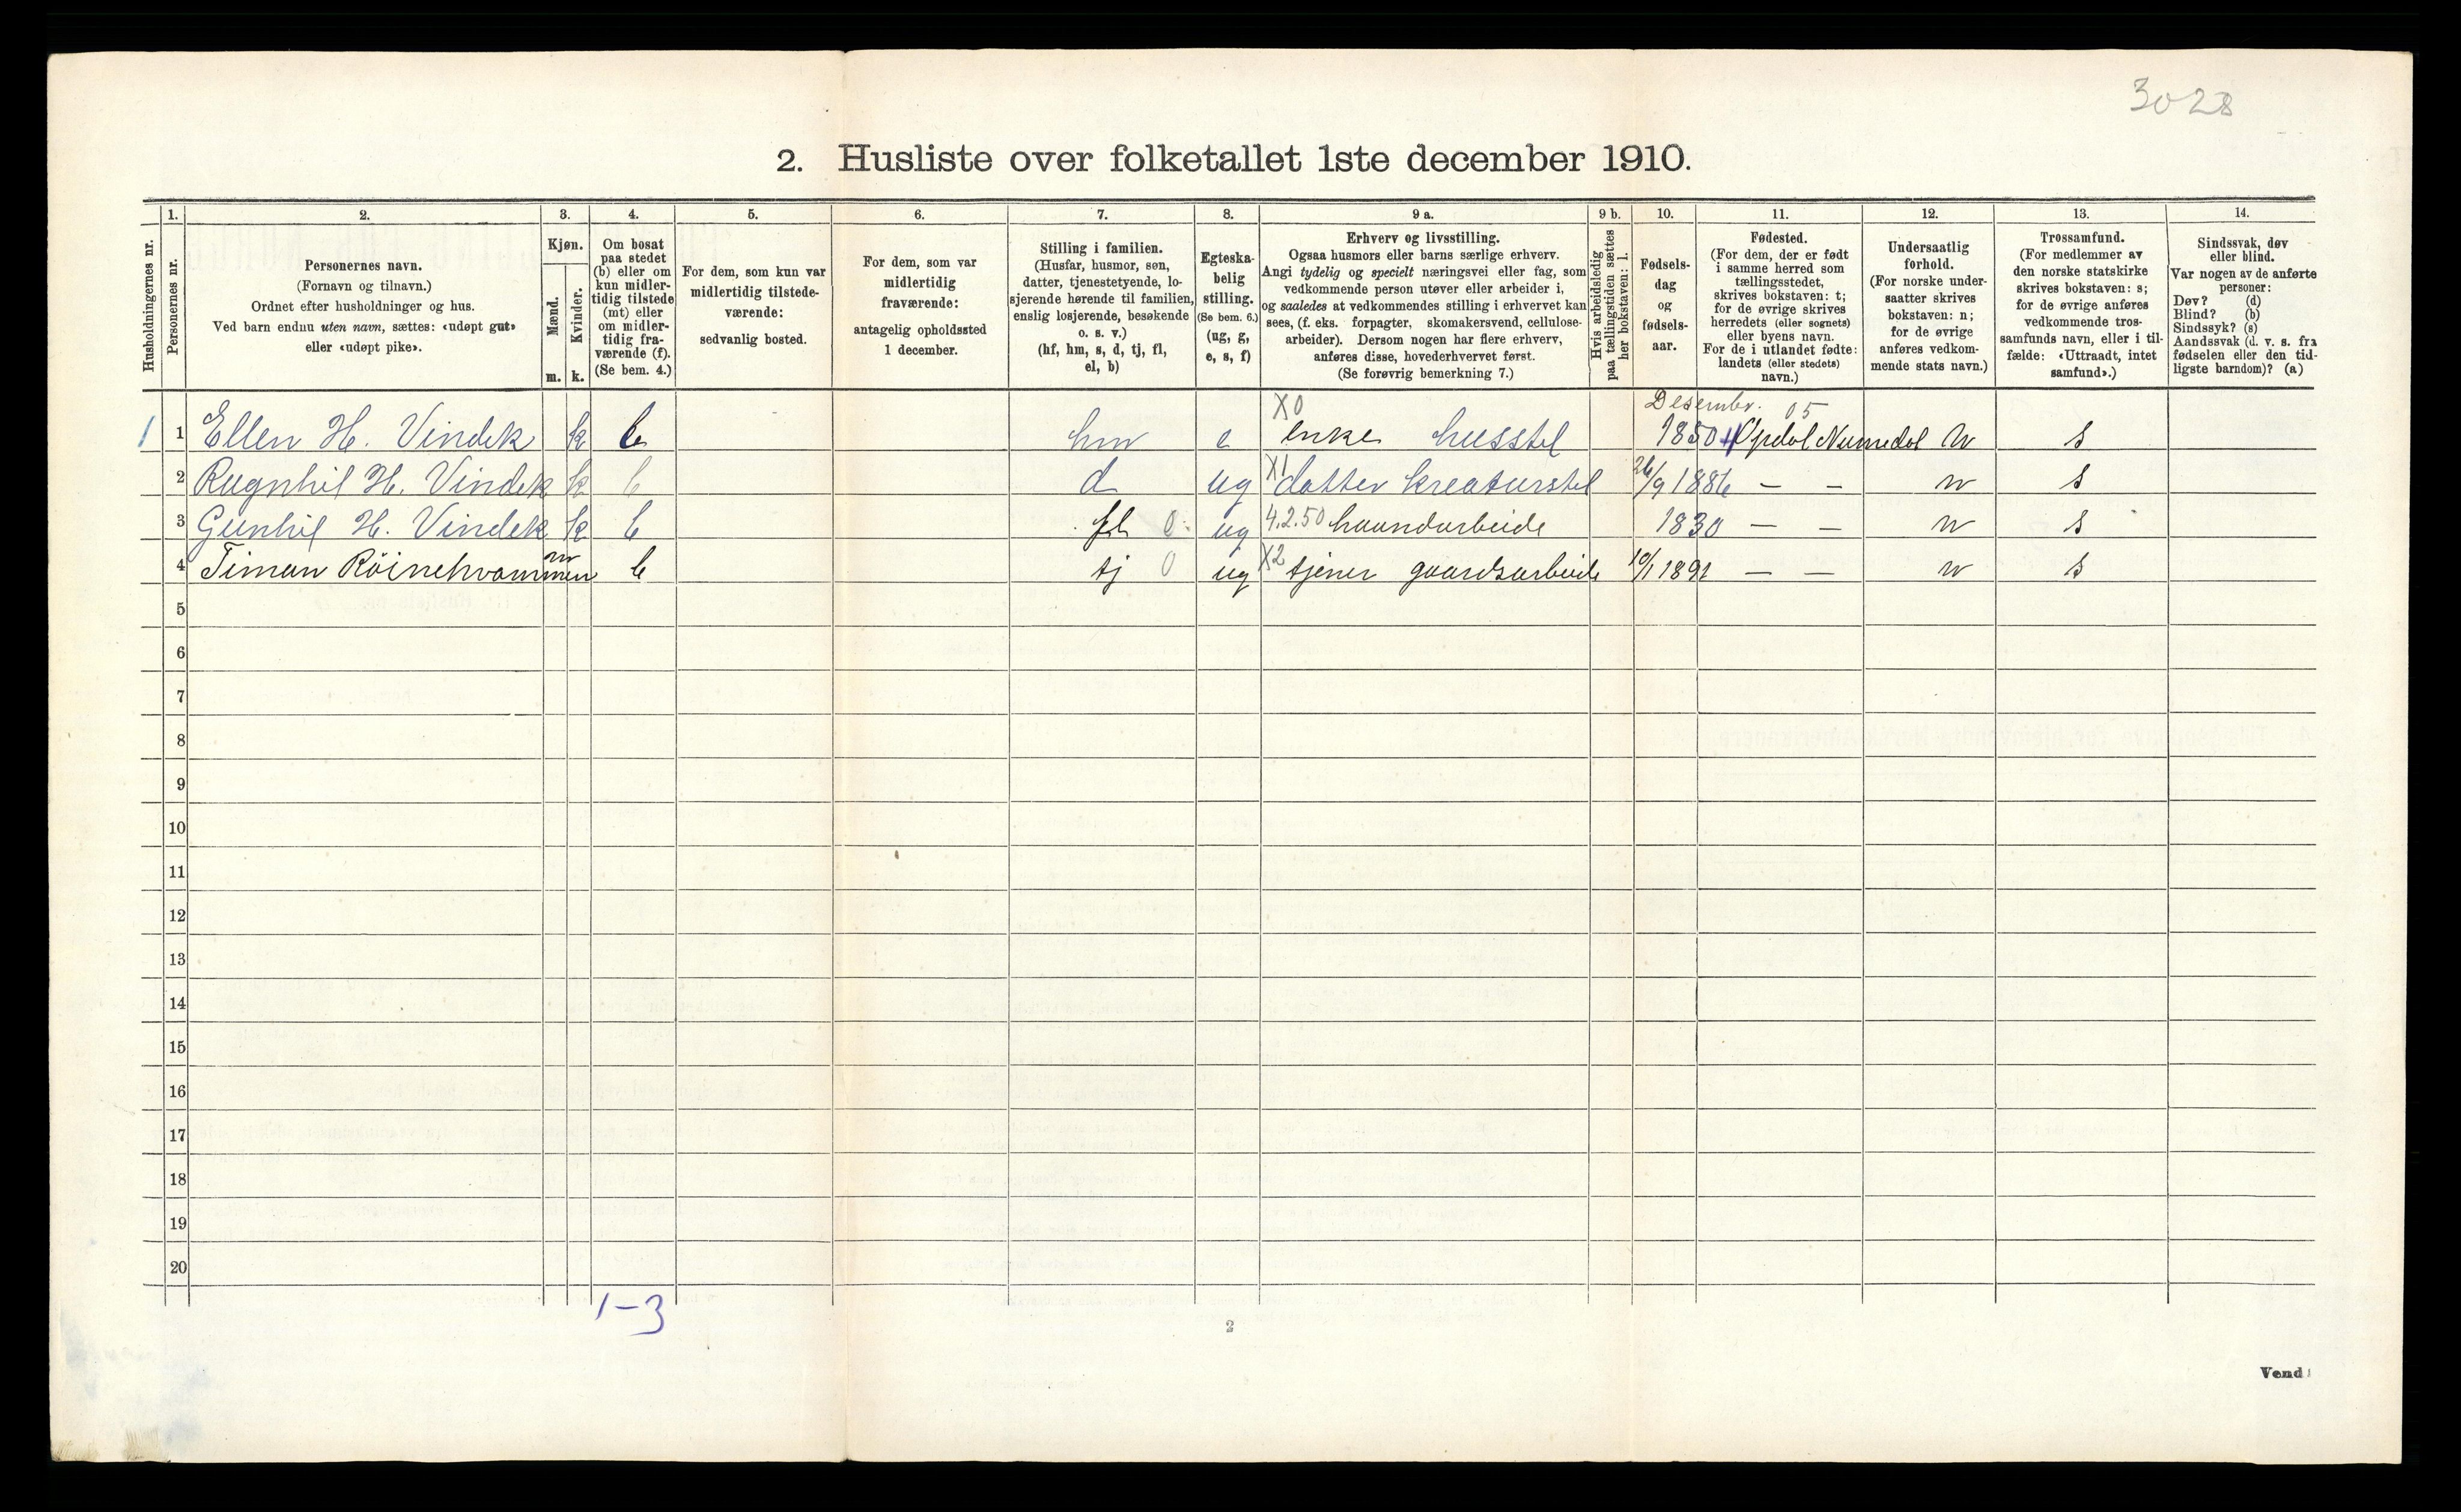 3028
2. Husliste over folketallet 1ste december 1910.
Husholdningernes nr.
1. Personernes nr.
2. Personernes navn.
(Fornavn og tilnavn.)
Ordnet efter husholdninger og hus.
Ved barn endnu uten navn, sættes: «udøpt gut»
eller «udøpt pike».
3. Kjøn.
Mænd. m.
Kvinder. k.
4. Om bosat
paa stedet
(b) eller om
kun midler-
tidig tilstede
(mt) eller
om midler-
tidig fra-
værende (f).
(Se bem. 4.)
5. For dem, som kun var
midlertidig tilstede-
værende:
sedvanlig bosted.
6. For dem, som var
midlertidig
fraværende:
antagelig opholdssted
1 december.
7. Stilling i familien.
(Husfar, husmor, søn,
datter, tjenestetyende, lo-
sjerende hørende til familien,
enslig losjerende, besøkende
o. s. v.)
(hf, hm, s, d, tj, fl,
el, b)
8. Egteska-
belig
stilling.
(Se bem. 6.)
(ug, g,
e, s, f)
9 a. Erhverv og livsstilling.
Ogsaa husmors eller barns særlige erhverv.
Angi tydelig og specielt næringsvei eller fag, som
vedkommende person utøver eller arbeider i,
og saaledes at vedkommendes stilling i erhvervet kan
sees, (f. eks. forpagter, skomakersvend, cellulose-
arbeider). Dersom nogen har flere erhverv,
anføres disse, hovederhvervet først.
(Se forøvrig bemerkning 7.)
9 b. Hvis arbeidsledig
paa tællingstiden sættes
her bokstaven: l.
10. Fødsels-
dag
og
fødsels-
aar.
11. Fødested.
(For dem, der er født
i samme herred som
tællingsstedet,
skrives bokstaven: t;
for de øvrige skrives
herredets (eller sognets)
eller byens navn.
For de i utlandet fødte:
landets (eller stedets)
navn.)
12. Undersaatlig
forhold.
(For norske under-
saatter skrives
bokstaven: n;
for de øvrige
anføres vedkom-
mende stats navn.)
13. Trossamfund.
(For medlemmer av
den norske statskirke
skrives bokstaven: s;
for de øvrige anføres
vedkommende tros-
samfunds navn, eller i til-
fælde: «Uttraadt, intet
samfund».)
14. Sindssvak, døv
eller blind.
Var nogen av de anførte
personer:
Døv? (d)
Blind? (b)
Sindssyk? (s)
Aandssvak (d. v. s. fra
fødselen eller den tid-
ligste barndom)? (a)
X0 Desember. 05
1 1 Ellen H. Vindek k b hm e enke husstel 1850 Opdal Numedal n s
2 Ragnhil H. Vindek k b d ug X1 datter kreaturstel 26/9 1886 — — n s
3 Gunhil H. Vindek k b fl 0 ug 4.2.50 haandarbeide 1830 — — n s
4 Timan Röinehvammen m b tj 0 ug X2 tjener gaardsarbeide 10/1 1891 — — n s
5
6
7
8
9
10
11
12
13
14
15
16
17
18
19
20
1-3
2
Vend